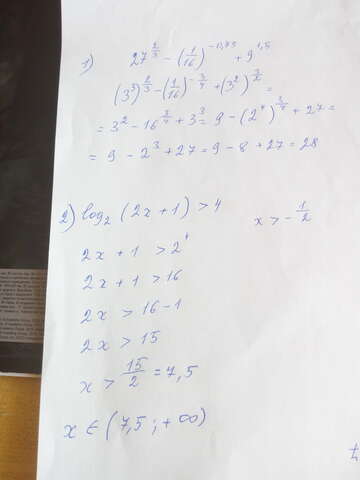 1) 27^{2/3} - (1/16)^{-0,75} + 9^{1,5}
(3^3)^{2/3} - (1/16)^{-3/4} + (3^2)^{3/2} =
= 3^2 - 16^{3/4} + 3^3 = 9 - (2^4)^{3/4} + 27 =
= 9 - 2^3 + 27 = 9 - 8 + 27 = 28
2) log_2 (2x+1) > 4 x > -1/2
2x + 1 > 2^4
2x + 1 > 16
2x > 16 - 1
2x > 15
x > 15/2 = 7,5
x ∈ (7,5 ; +∞)